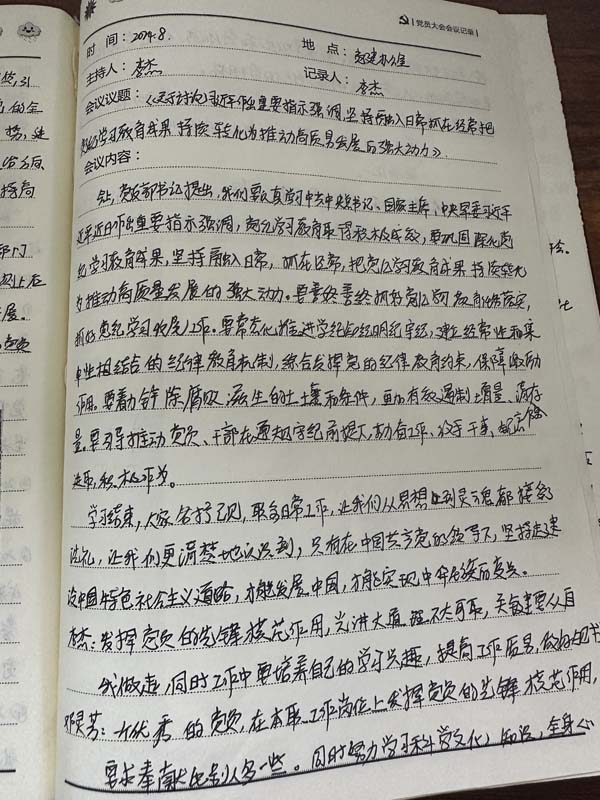 党员大会会议记录
时 间：2024.8. 地 点：党建办公室
主持人：李杰 记录人：李杰
会议议题：《学习讨论习近平作出重要指示强调,坚持融入日常抓在经常把
党纪学习教育成果持续转化为推动高质量发展的强大动力》
会议内容：
会上,党支部书记提出,我们要认真学习中共中央总书记、国家主席、中央军委习近平
近平近日作出重要指示强调,党纪学习教育取得积极成效,要巩固深化党
纪学习教育成果,坚持融入日常,抓在经常,把党纪学习教育成果持续转化
为推动高质量发展的强大动力。要善终善始抓好党纪学习教育任务落实,
抓好党纪学习收尾工作。要常态化推进学纪知纪明纪守纪,建立经常性和集
中性相结合的纪律教育机制,综合发挥党的纪律教育约束,保障激励
作用。要着力铲除腐败滋生的土壤和条件,更加有效遏制增量,清存
量。要引导推动党员、干部在遵规守纪前提下,协自工作、敢于干事、
进取,积极作为。
学习结束,大家各抒己见,联系日常工作,让我们从思想上到灵魂都接受
洗礼,让我们更清楚地认识到,只有在中国共产党的领导下,坚持走建
设中国特色社会主义道路,才能发展中国,才能实现中华民族伟大复兴。
李杰：发挥党员的先锋模范作用,光讲大道理不大可取,关键要从自
我做起,同时工作中要培养自己的学习兴趣,提高工作质量,做好
邓灵芳：一个优秀的党员,在本职工作岗位上发挥党员的先锋模范作用,
要求奉献比别人多一些。同时努力学习科学文化知识,全身心